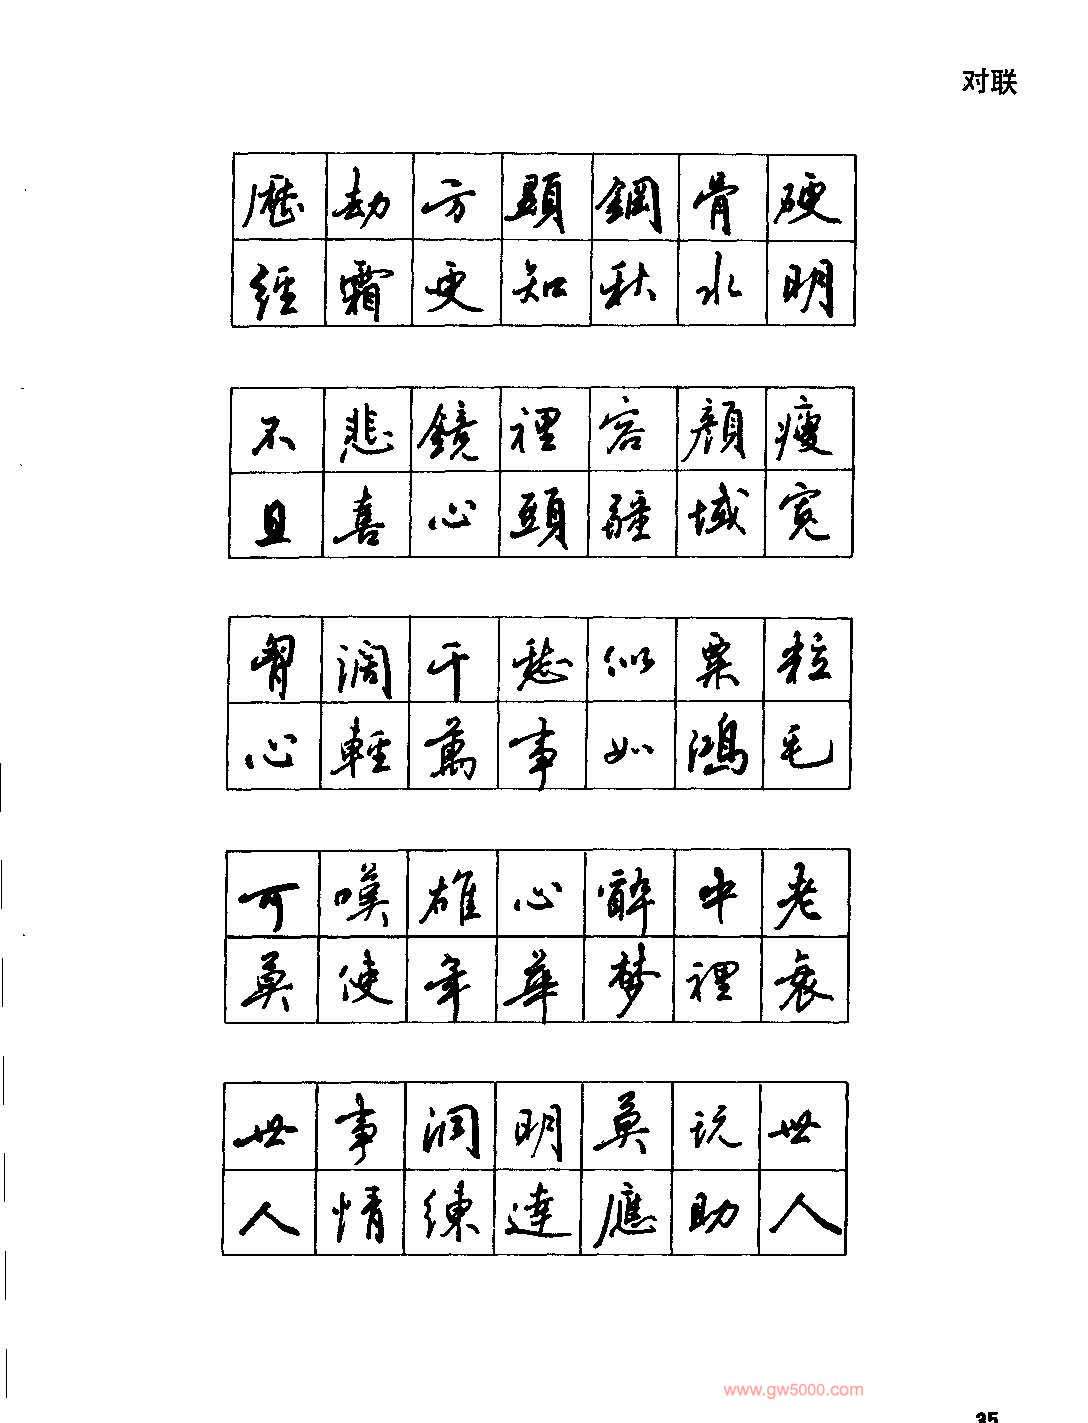 对联
歷劫方顯鋼骨硬
經霜更知秋水明
不悲鏡裡容顏瘦
且喜心頭疆域宽
胷闊千愁似粟粒
心輕萬事如鴻毛
可嘆雄心醉中老
莫使年華梦裡衰
世事洞明莫玩世
人情練達應助人
www.gw5000.com
35